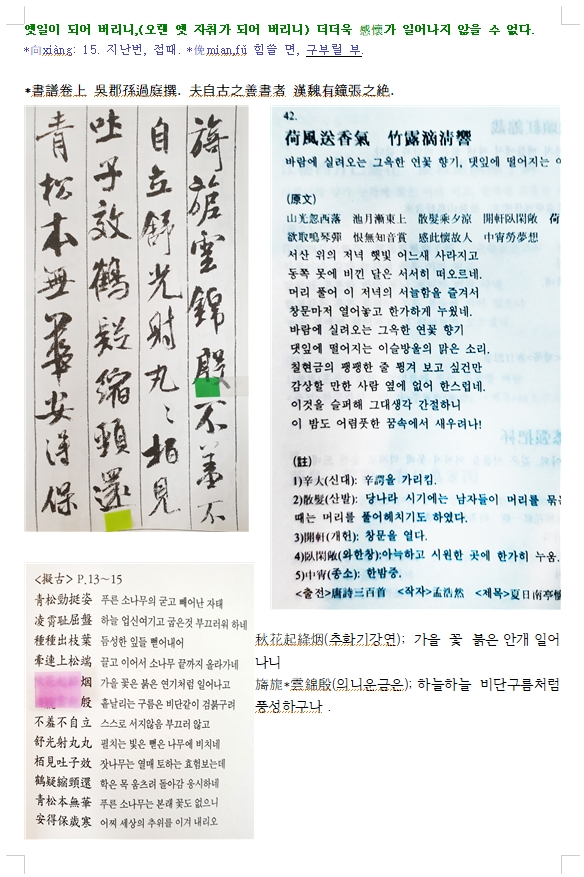 옛일이 되어 버리니,(오랜 옛 자취가 되어 버리니) 더더욱 感懷가 일어나지 않을 수 없다.
*向xiàng: 15. 지난번, 접때. *俛mian,fǔ 힘쓸 면, 구부릴 부.
*書譜卷上 吳郡孫過庭撰. 夫自古之善書者 漢魏有鐘張之絶.
旖旎雲錦殷不羞不
自立舒光射丸〻栢見
吐子效鶴疑縮頸還
青松本無華安得保
42.
荷風送香氣 竹露滴淸響
바람에 실려오는 그윽한 연꽃 향기, 댓잎에 떨어지는 이
(原文)
山光忽西落 池月漸東上 散髮乘夕凉 開軒臥閑敞 荷
欲取鳴琴彈 恨無知音賞 感此懷故人 中宵勞夢想
서산 위의 저녁 햇빛 어느새 사라지고
동쪽 못에 비긴 달은 서서히 떠오르네.
머리 풀어 이 저녁의 서늘함을 즐겨서
창문마저 열어놓고 한가하게 누웠네.
바람에 실려오는 그윽한 연꽃 향기
댓잎에 떨어지는 이슬방울의 맑은 소리.
칠현금의 팽팽한 줄 튕겨 보고 싶건만
감상할 만한 사람 옆에 없어 한스럽네.
이것을 슬퍼해 그대생각 간절하니
이 밤도 어렴풋한 꿈속에서 새우려나!
(註)
1)辛大(신대): 辛諤을 가리킴.
2)散髮(산발): 당나라 시기에는 남자들이 머리를 묶은
때는 머리를 풀어헤치기도 하였다.
3)開軒(개헌): 창문을 열다.
4)臥閑敞(와한창):아늑하고 시원한 곳에 한가히 누움.
5)中宵(종소): 한밤중.
<출전>唐詩三百首 <작자>孟浩然 <제목>夏日南亭懷
<擬古> P.13~15
靑松勁挺姿 푸른 소나무의 굳고 빼어난 자태
凌霄耻屈盤 하늘 업신여기고 굽은것 부끄러워 하네
種種出枝葉 듬성한 잎들 뻗어내어
牽連上松端 끌고 이어서 소나무 끝까지 올라가네
烟 가을 꽃은 붉은 연기처럼 일어나고
殷 흩날리는 구름은 비단같이 검붉구려
不羞不自立 스스로 서지않음 부끄러 않고
舒光射丸丸 펼치는 빛은 뻗은 나무에 비치네
栢見吐子效 잣나무는 열매 토하는 효험보는데
鶴疑縮頸還 학은 목 움츠려 돌아감 응시하네
靑松本無華 푸른 소나무는 본래 꽃도 없으니
安得保歲寒 어찌 세상의 추위를 이겨 내리오
秋花起絳烟(추화기강연); 가을 꽃 붉은 안개 일어
나니
旖旎*雲錦殷(의니운금은); 하늘하늘 비단구름처럼
풍성하구나 .